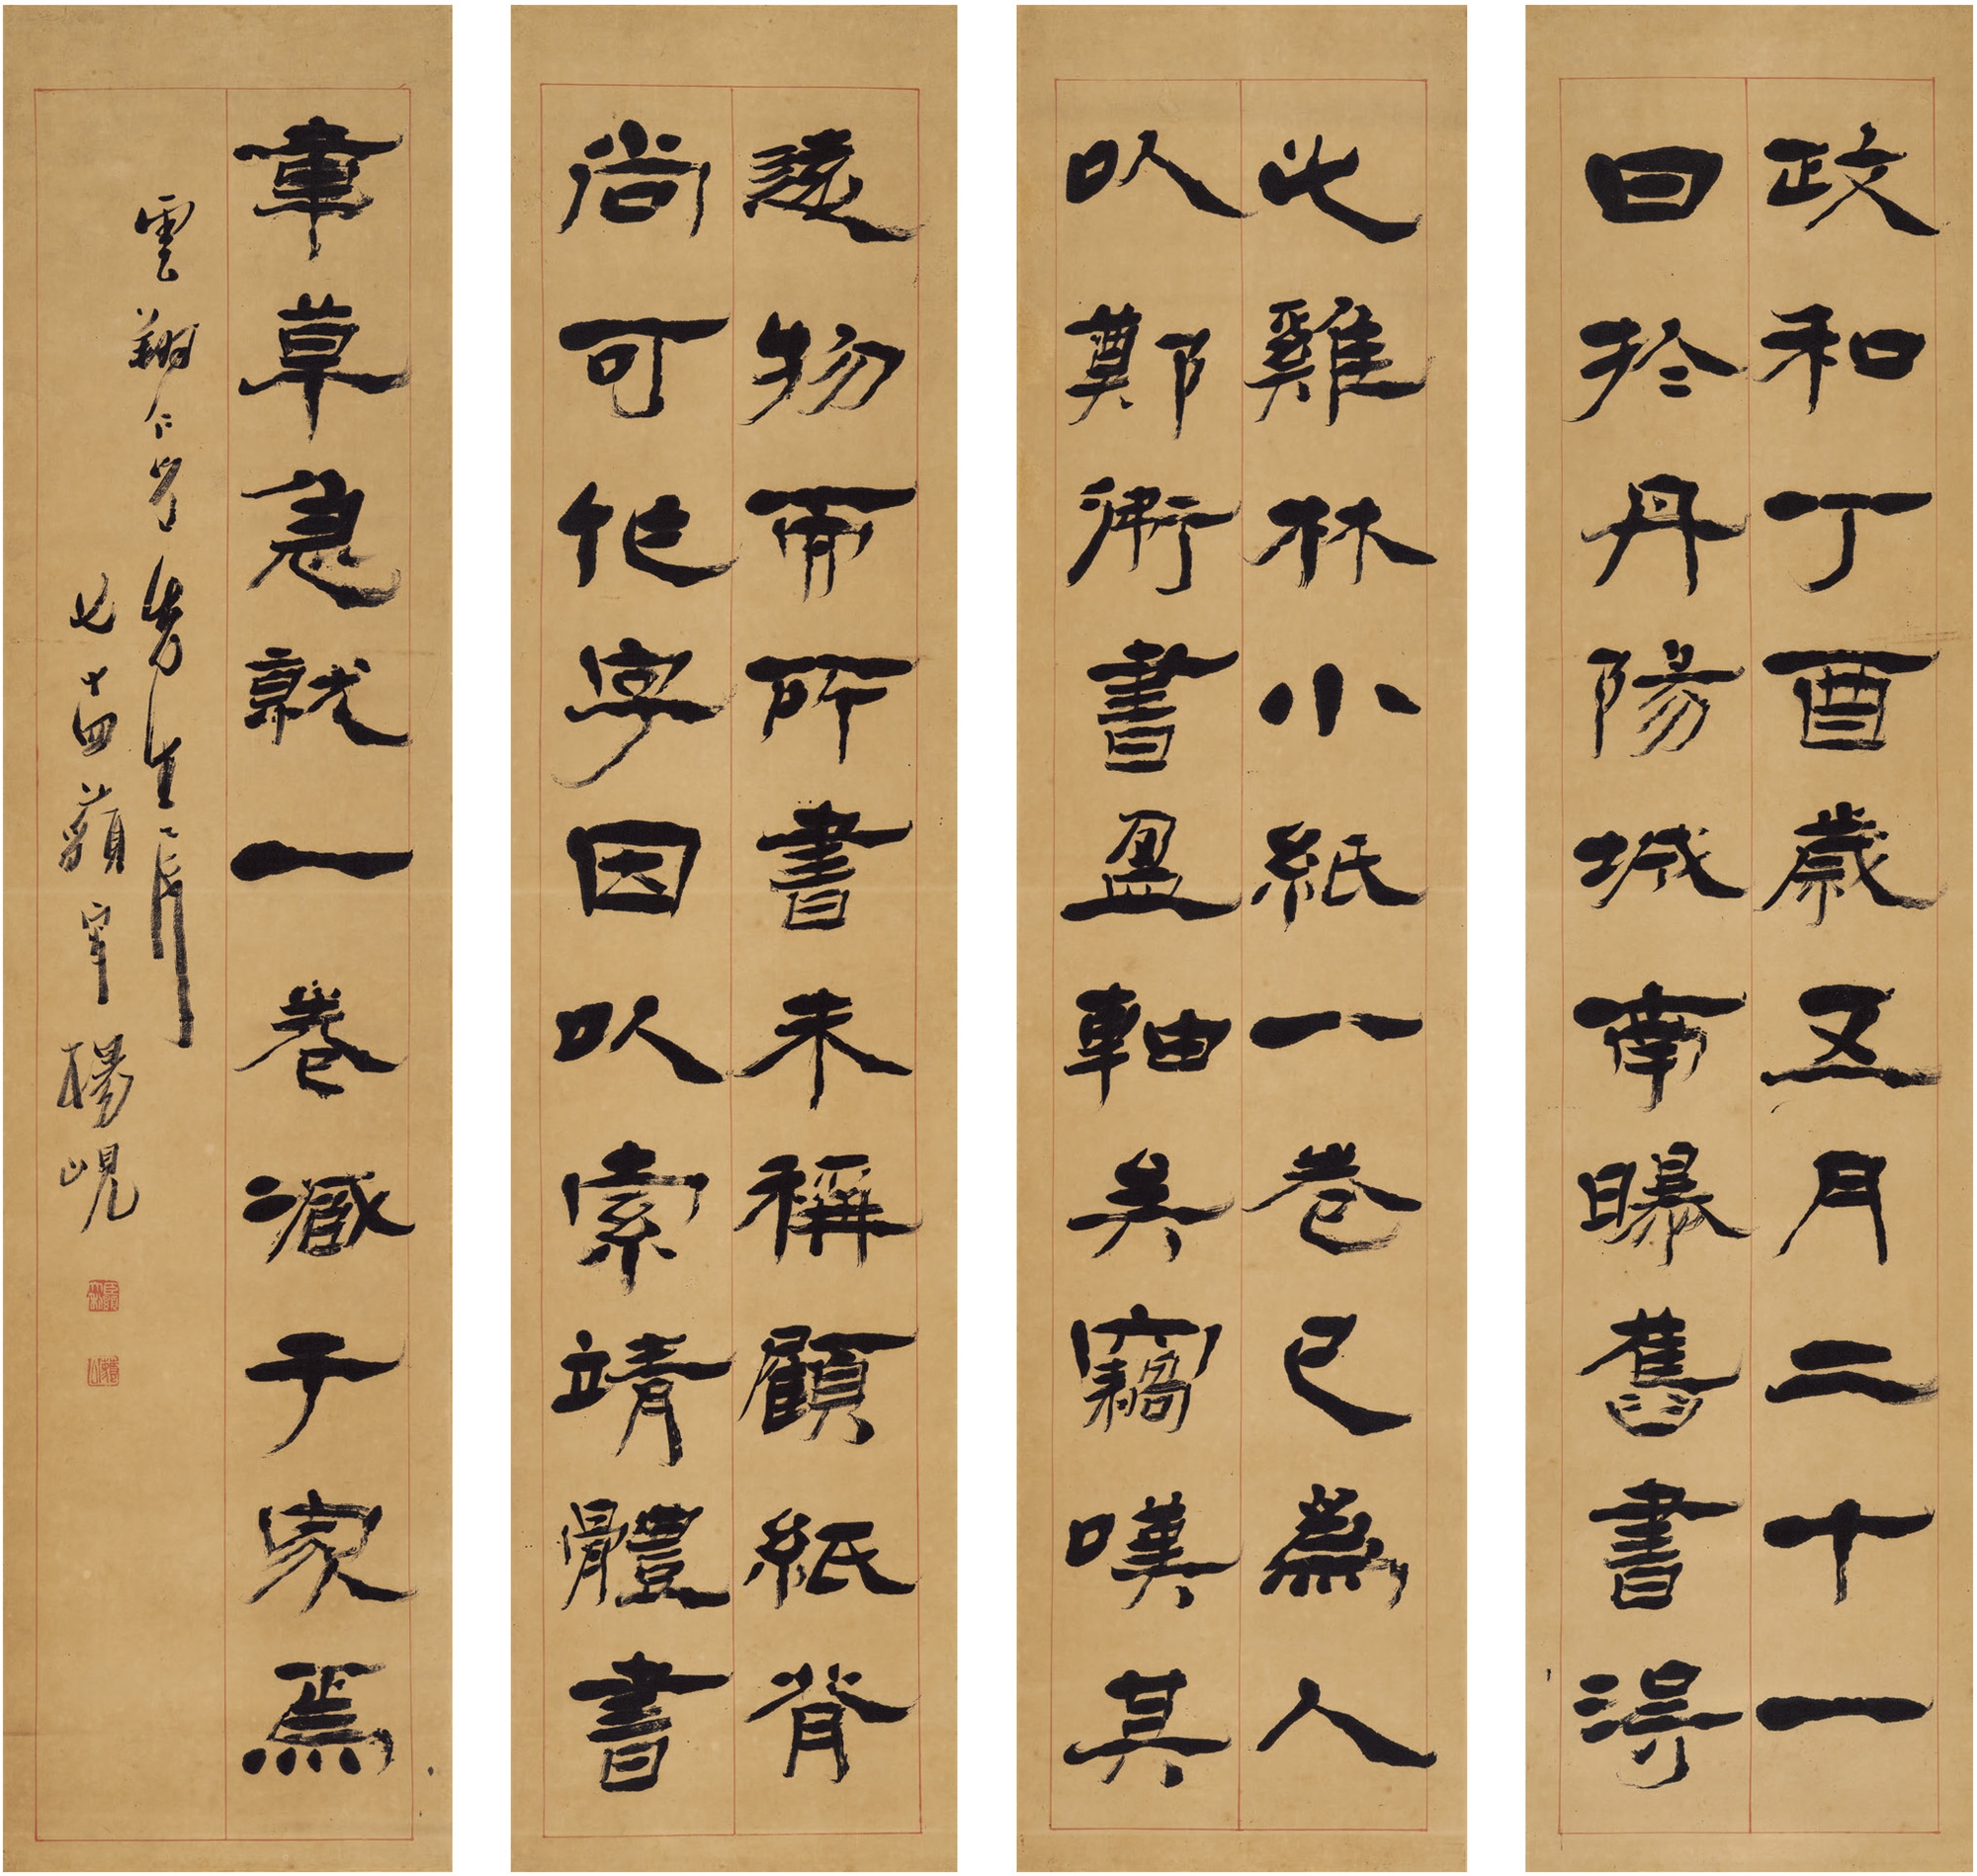 政和丁酉歲五月二十一
日於丹陽城南曝舊書得
此雞林小紙一卷已爲人
以鄭衛書盈軸矣竊嘆其
遠物而所書未稱顧紙背
尚可作字因以索靖體書
章草急就一卷藏于家焉
雲翔仁兄先生屬
七十四藐叟楊峴